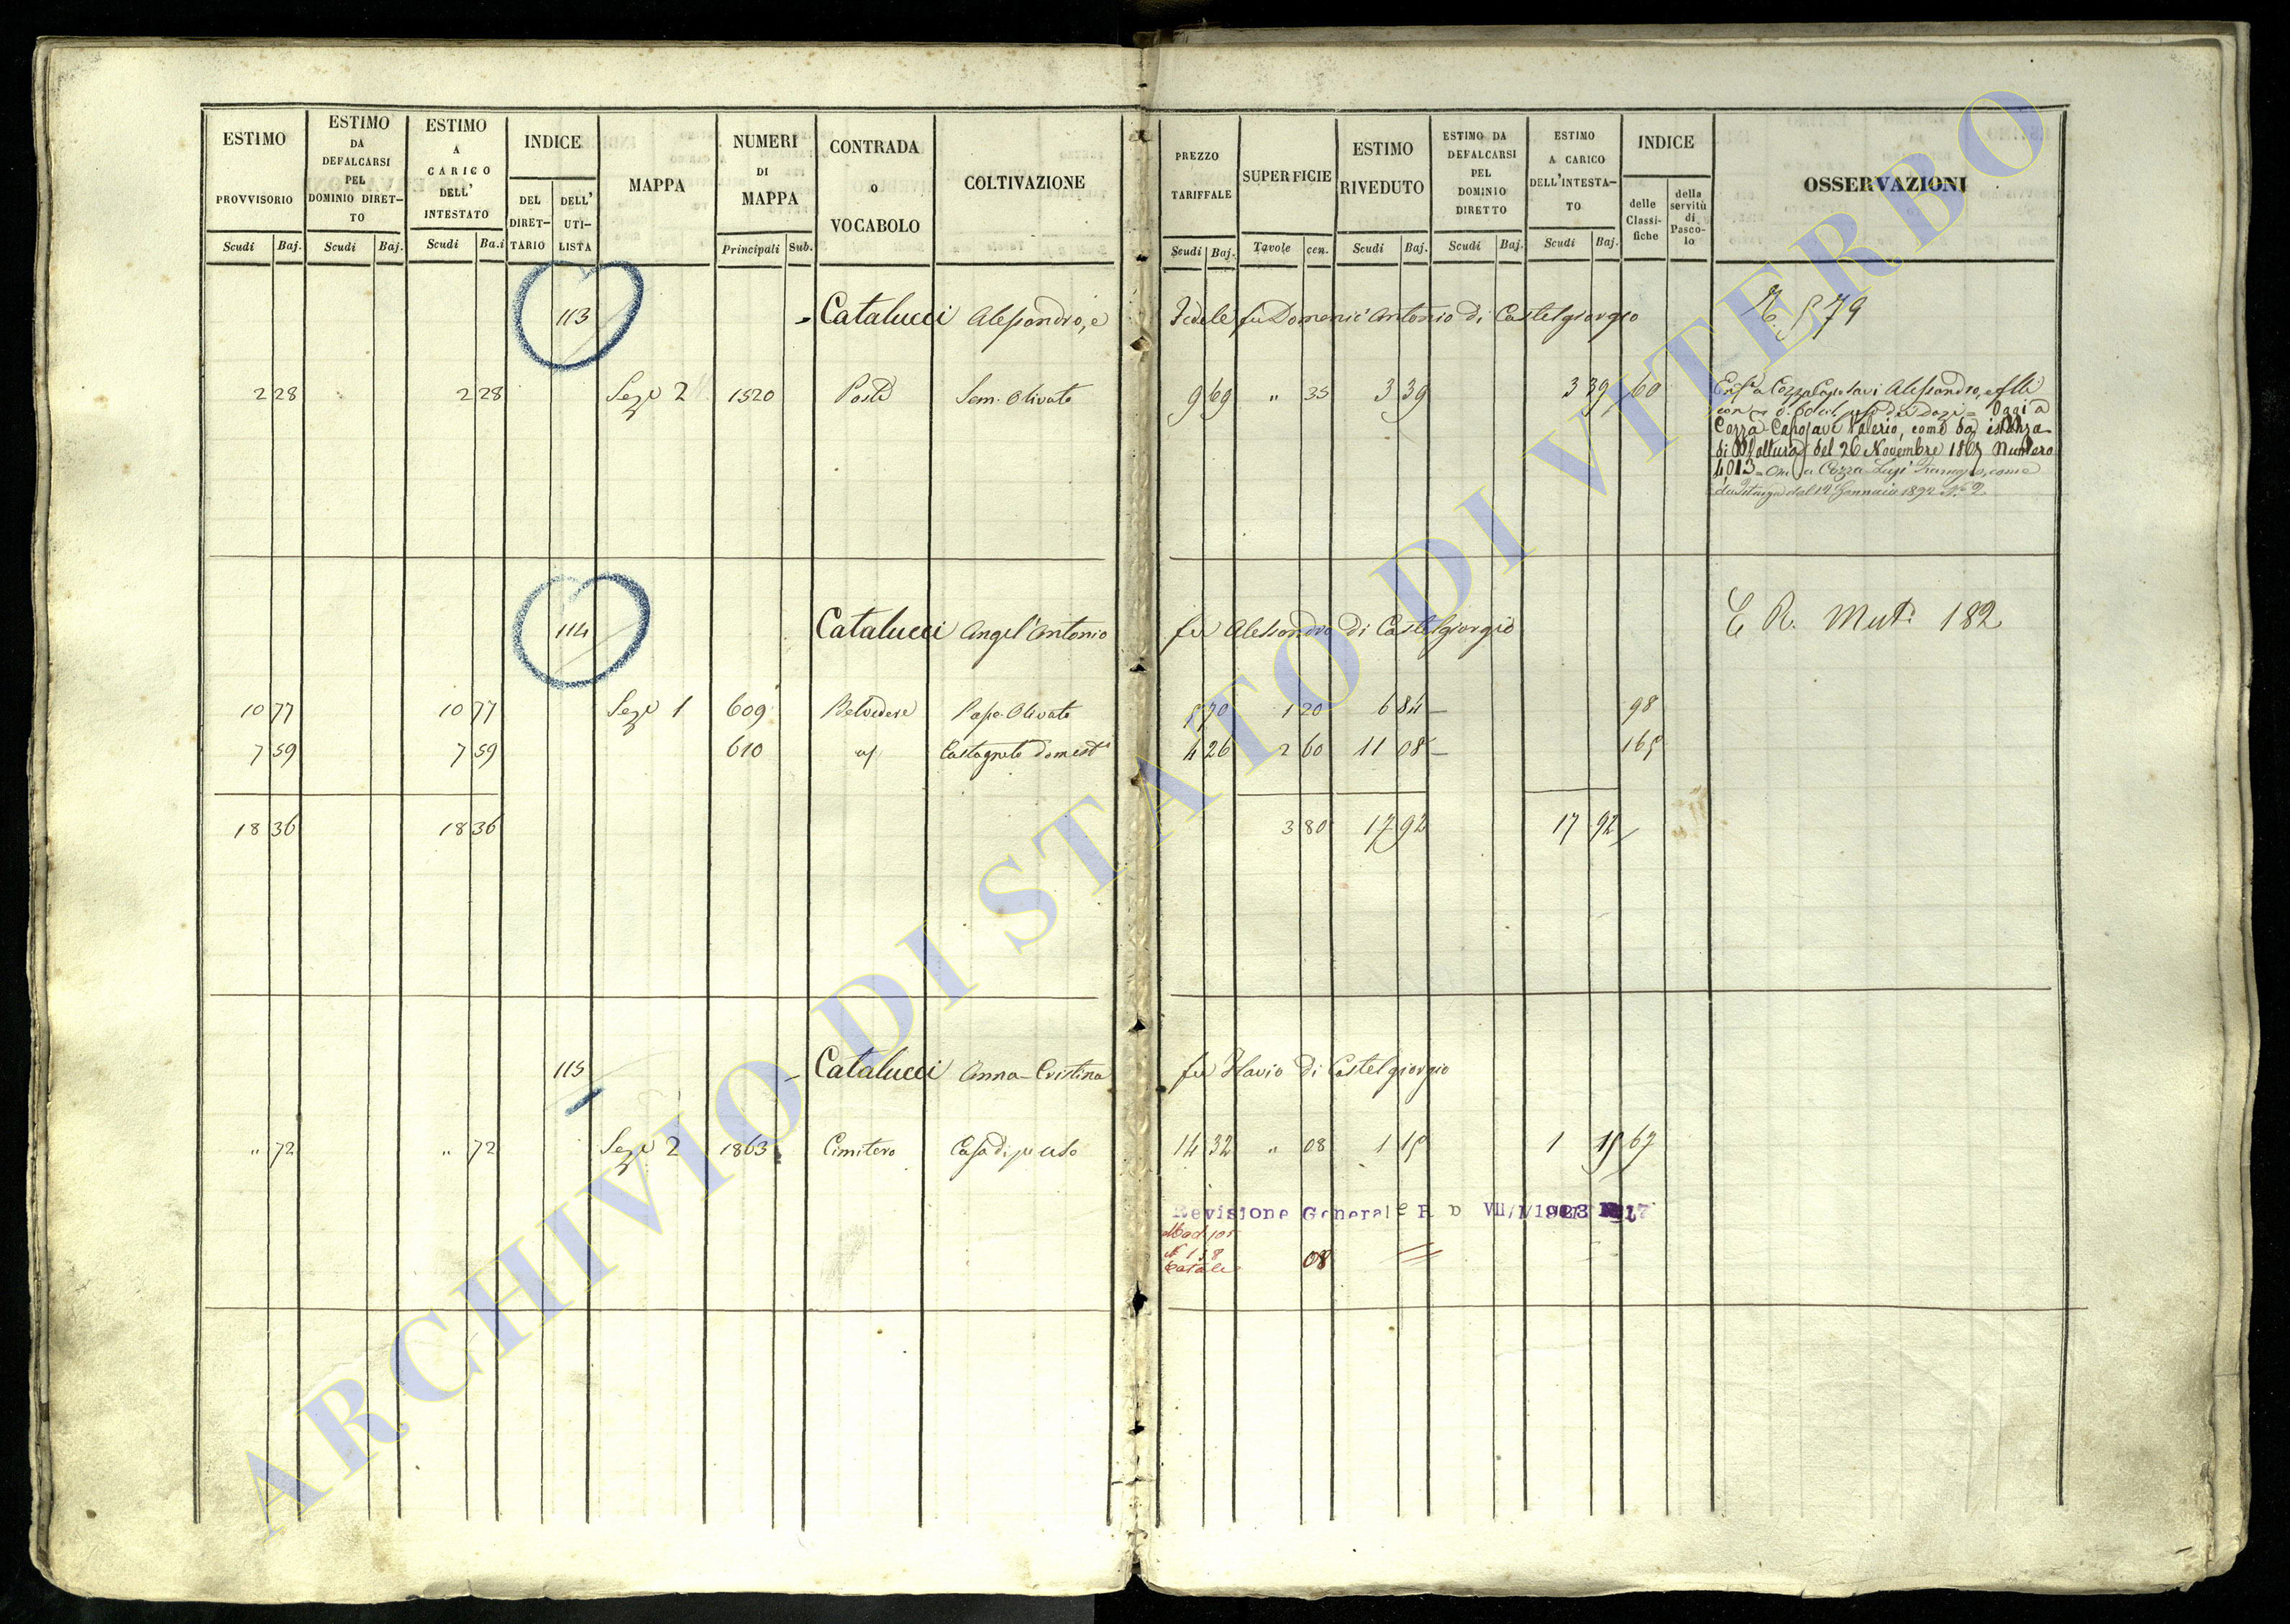 ESTIMO PROVVISORIO Scudi Baj.
ESTIMO DA DEFALCARSI PEL DOMINIO DIRET-TO Scudi Baj.
ESTIMO A CARICO DELL' INTESTATO Scudi Ba.i
INDICE DEL DIRET-TARIO DELL' UTI-LISTA
MAPPA
NUMERI DI MAPPA Principali Sub.
CONTRADA O VOCABOLO
COLTIVAZIONE
PREZZO TARIFFALE Scudi Baj.
SUPERFICIE Tavole cen.
ESTIMO RIVEDUTO Scudi Baj.
ESTIMO DA DEFALCARSI PEL DOMINIO DIRETTO Scudi Baj.
ESTIMO A CARICO DELL'INTESTA-TO Scudi Baj.
INDICE delle Classi-fiche della servitù di Pasco-lo
OSSERVAZIONI
113 Catalucci Alessandro, e Fedele fu Domenic'Antonio di Castelgiorgio 79
2 28 2 28 Sez. 2 1520 Poste Sem. Olivato 9 69 " 35 3 39 3 39 60
Cozza Caposavi Alessandro, e flli
Oggi a
Cozza Caposavi Valerio, come da istanza
di Voltura del 26 Novembre 1867 Numero
4013 = Ora a Cozza Luigi come
da istanza del 12 Gennaio 1892 N. 2
114 Catalucci Angel'Antonio fu Alessandro di Castelgiorgio E R. Mut. 182
10 77 10 77 Sez. 1 609 Belvedere Pas. Olivato 5 70 1 20 6 84 98
7 59 7 59 610 Castagneto domest. 4 26 2 60 11 08 165
18 36 18 36 3 80 17 92 17 92
115 Catalucci Anna-Cristina fu Flavio di Castelgiorgio
" 72 " 72 Sez. 2 1863 Cimitero Casa di pp uso 14 32 " 08 1 15 1 15 67
Revisione Generale
Mod 105
N 158
Catale
08
ARCHIVIO DI STATO DI VITERBO